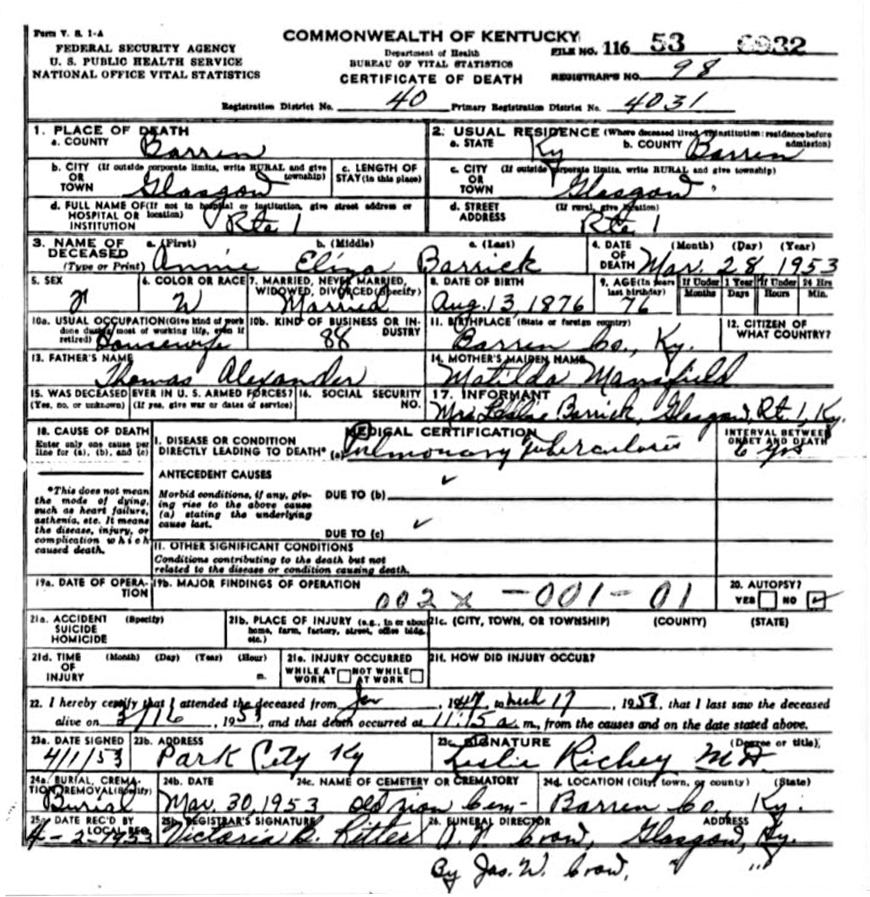 Form V. S. 1-A
COMMONWEALTH OF KENTUCKY
FEDERAL SECURITY AGENCY
U. S. PUBLIC HEALTH SERVICE
NATIONAL OFFICE VITAL STATISTICS
Department of Health
BUREAU OF VITAL STATISTICS
CERTIFICATE OF DEATH
FILE NO. 116 53
REGISTRAR'S NO. 98
Registration District No. 40 Primary Registration District No. 4031
1. PLACE OF DEATH
a. COUNTY Barren
2. USUAL RESIDENCE (Where deceased lived. If institution: residence before admission)
a. STATE Ky b. COUNTY Barren
b. CITY (If outside corporate limits, write RURAL and give township)
OR TOWN Glasgow
c. LENGTH OF STAY (in this place)
c. CITY (If outside corporate limits, write RURAL and give township)
OR TOWN Glasgow
d. FULL NAME OF (If not in hospital or institution, give street address or location)
HOSPITAL OR INSTITUTION Rte 1
d. STREET ADDRESS (If rural, give location) Rte 1
3. NAME OF DECEASED (Type or Print) a. (First) b. (Middle) c. (Last)
Annie Eliza Barrick
4. DATE OF DEATH (Month) (Day) (Year)
Mar. 28 1953
5. SEX
6. COLOR OR RACE W
7. MARRIED, NEVER MARRIED, WIDOWED, DIVORCED (Specify) Married
8. DATE OF BIRTH Aug. 13, 1876
9. AGE (In years last birthday) 76
If Under 1 Year Months Days
If Under 24 Hrs Hours Min.
10a. USUAL OCCUPATION (Give kind of work done during most of working life, even if retired) Housewife
10b. KIND OF BUSINESS OR INDUSTRY 88
11. BIRTHPLACE (State or foreign country) Barren Co., Ky.
12. CITIZEN OF WHAT COUNTRY?
13. FATHER'S NAME Thomas Alexander
14. MOTHER'S MAIDEN NAME Matilda Mansfield
15. WAS DECEASED EVER IN U. S. ARMED FORCES? (Yes, no, or unknown) (If yes, give war or dates of service)
16. SOCIAL SECURITY NO.
17. INFORMANT
Mrs Leslie Barrick, Glasgow, Rt. 1, Ky.
18. CAUSE OF DEATH
Enter only one cause per line for (a), (b), and (c)
MEDICAL CERTIFICATION
INTERVAL BETWEEN ONSET AND DEATH
I. DISEASE OR CONDITION DIRECTLY LEADING TO DEATH* (a) Pulmonary Tuberculosis 6 yrs
*This does not mean the mode of dying, such as heart failure, asthenia, etc. It means the disease, injury, or complication which caused death.
ANTECEDENT CAUSES
Morbid conditions, if any, giving rise to the above cause (a) stating the underlying cause last.
DUE TO (b) ✓
DUE TO (c) ✓
II. OTHER SIGNIFICANT CONDITIONS
Conditions contributing to the death but not related to the disease or condition causing death.
19a. DATE OF OPERATION
19b. MAJOR FINDINGS OF OPERATION
002 x -001-01
20. AUTOPSY?
YES ☐ NO ☑
21a. ACCIDENT SUICIDE HOMICIDE (Specify)
21b. PLACE OF INJURY (e.g., in or about home, farm, factory, street, office bldg. etc.)
21c. (CITY, TOWN, OR TOWNSHIP) (COUNTY) (STATE)
21d. TIME OF INJURY (Month) (Day) (Year) (Hour) m.
21e. INJURY OCCURRED
WHILE AT WORK ☐ NOT WHILE AT WORK ☐
21f. HOW DID INJURY OCCUR?
22. I hereby certify that I attended the deceased from Jan, 1947, to 17, 1953, that I last saw the deceased
alive on 3/16, 1953, and that death occurred at 11:15 a m., from the causes and on the date stated above.
23a. DATE SIGNED 4/1/53
23b. ADDRESS Park City Ky
23c. SIGNATURE (Degree or title)
Leslie Richey MD
24a. BURIAL, CREMATION, REMOVAL (Specify) Burial
24b. DATE Mar. 30, 1953
24c. NAME OF CEMETERY OR CREMATORY Old Zion Cem-
24d. LOCATION (City, town, or county) (State) Barren Co., Ky.
25a. DATE REC'D BY LOCAL REG. 4-2-1953
25b. REGISTRAR'S SIGNATURE Victoria B. Ritter
26. FUNERAL DIRECTOR ADDRESS
Crow, Glasgow, Ky.
By Jas. W. Crow, " "